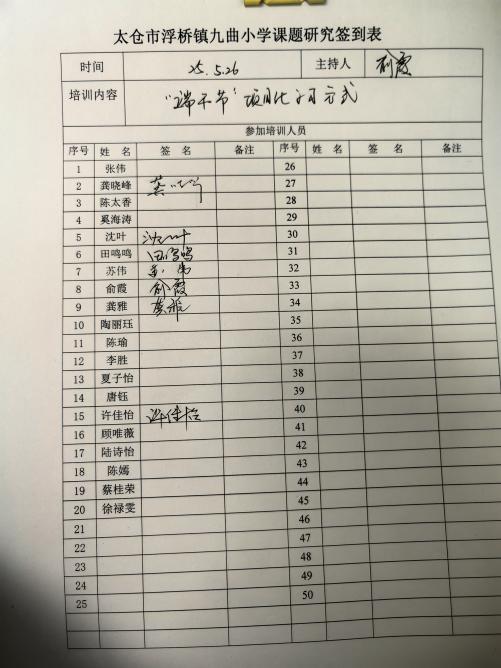 太仓市浮桥镇九曲小学课题研究签到表
时间 25.5.26 主持人 俞霞
培训内容 "端午节"项目化学习方式
参加培训人员
序号 姓 名 签 名 备注 序号 姓 名 签 名 备注
1 张伟 26
2 龚晓峰 龚晓峰 27
3 陈太香 28
4 奚海涛 29
5 沈叶 沈叶 30
6 田鸣鸣 田鸣鸣 31
7 苏伟 苏伟 32
8 俞霞 俞霞 33
9 龚雅 龚雅 34
10 陶丽珏 35
11 陈瑜 36
12 李胜 37
13 夏子怡 38
14 唐钰 39
15 许佳怡 许佳怡 40
16 顾唯薇 41
17 陆诗怡 42
18 陈嫣 43
19 蔡桂荣 44
20 徐禄雯 45
21 46
22 47
23 48
24 49
25 50